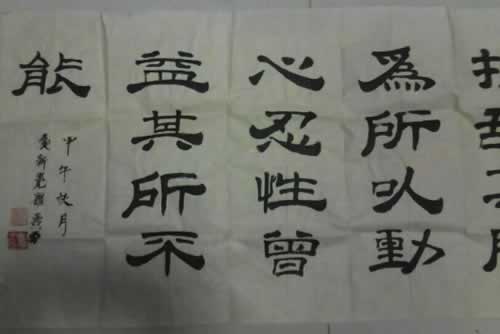 為所以動
心忍性曾
益其所不
能
甲午秋月
愛新覺羅